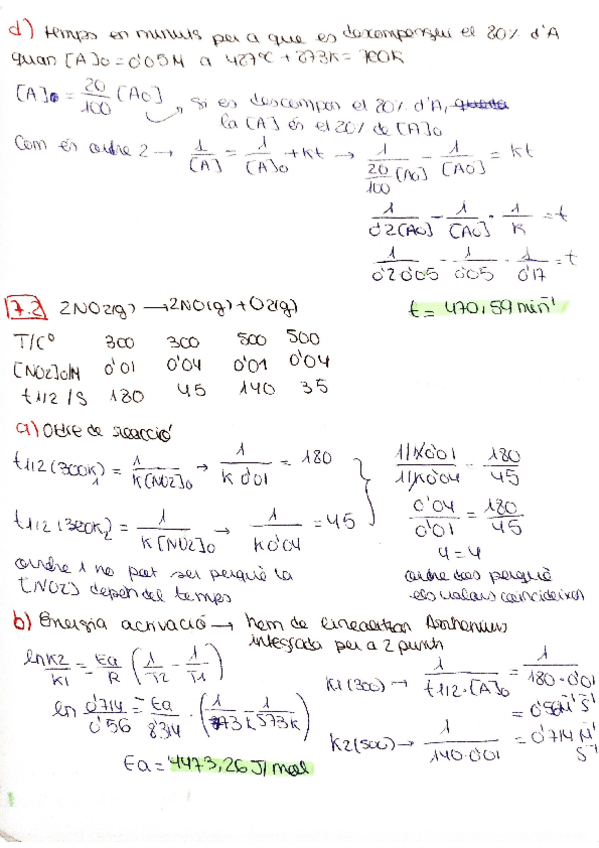 d) temps en minuts per a que es descompongui el 80% d'A
quan [A]o = 0'05M a 427ºC + 273K = 700K
[A]o = 20/100 [Ao] Si es descompon el 80% d'A, queda
la [A] és el 20% de [A]o
Com és ordre 2 → 1/[A] = 1/[A]o + Kt → 1/(20/100 [Ao]) - 1/[Ao] = Kt
1/0'2[Ao] - 1/[Ao] · 1/K = t
1/0'2 0'05 - 1/0'05 · 1/0'17 = t
t = 470,59 min⁻¹
7.2 2NO2(g) → 2NO(g) + O2(g)
T/Cº 300 300 500 500
[NO2]o/M 0'01 0'04 0'01 0'04
t1/2 /S 180 45 140 35
a) Ordre de reacció
t1/2 (300K)1 = 1/K[NO2]o → 1/K 0'01 = 180
1/K 0'01 / 1/K 0'04 = 180/45
t1/2 (300K2) = 1/K[NO2]o → 1/K 0'04 = 45
0'04/0'01 = 180/45
4 = 4
ordre 1 no pot ser perquè la
[NO2] depèn del temps
ordre dos perquè
els valors coincideixen
b) Energia activació → hem de linealitzar Arrhenius
integrada per a 2 punts
ln K2/K1 = Ea/R (1/T2 - 1/T1)
K1 (300) → 1/t1/2·[A]o = 1/180·0'01
= 0'56 M⁻¹ S⁻¹
ln 0'714/0'56 = Ea/8'314 · (1/773K - 1/573K)
K2 (500) → 1/140·0'01 = 0'714 M⁻¹ S⁻¹
Ea = 4473,26 J/mol